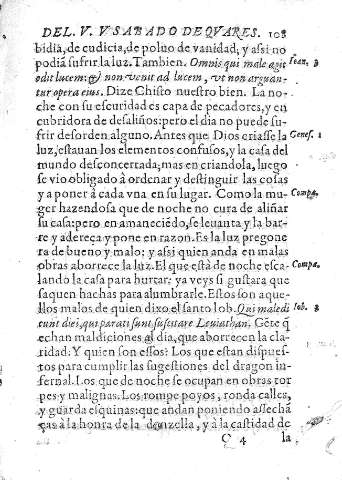 DEL. V. V SABADO DE QVARES. 108
bidiã, de cudicia, de poluo de vanidad, y assi no
podiã sufrir la luz. Tambien. Omnis qui male agit
odit lucem: & non venit ad lucem, vt non arguan-
tur opera eius. Dize Chisto nuestro bien. La no-
che con su escuridad es capa de pecadores, y en
cubridora de desaliños: pero el dia no puede su-
frir desorden alguno. Antes que Dios criasse la
luz, estauan los elementos confusos, y la casa del
mundo desconcertada; mas en criandola, luego
se vio obligado à ordenar y destinguir las cosas
y a poner à cada vna en su lugar. Como la mu-
ger hazendosa que de noche no cura de aliñar
su casa: pero en amaneciẽdo, se leuanta y la bar-
re y adereça y pone en razon. Es la luz pregone
ra de bueno y malo; y assi quien anda en malas
obras aborrece la luz. El que està de noche esca-
lando la casa para hurtar: ya veys si gustara que
saquen hachas para alumbrarle. Estos son aque-
llos malos de quien dixo el santo Iob. Qui maledi
cunt diei, qui parati sunt suscitare Leuiathan. Gẽte q̃
echan maldiciones al dia, que aborrecen la cla-
ridad. Y quien son essos? Los que estan dispues-
tos para cumplir las sugestiones del dragon in-
fernal. Los que de noche se ocupan en obras tor
pes y malignas. Los rompe poyos, ronda calles,
y guarda esquinas: que andan poniendo assechã
ças à la honra de la donzella, y à la castidad de
C 4 la
Ioan. 3
Genes. 1
Compa.
Compa.
Iob. 3